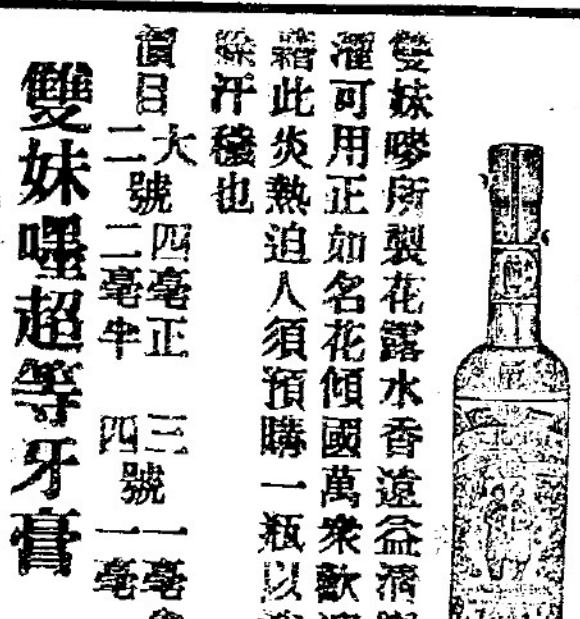 雙妹嘜所製花露水香遠益清
濯可用正如名花傾國萬衆歡
此炎熱迫人須預購一瓶以
除汗穢也
價目
大號 四毫正
二號 二毫半
三號 一毫
四號 一毫
雙妹嘜超等牙膏